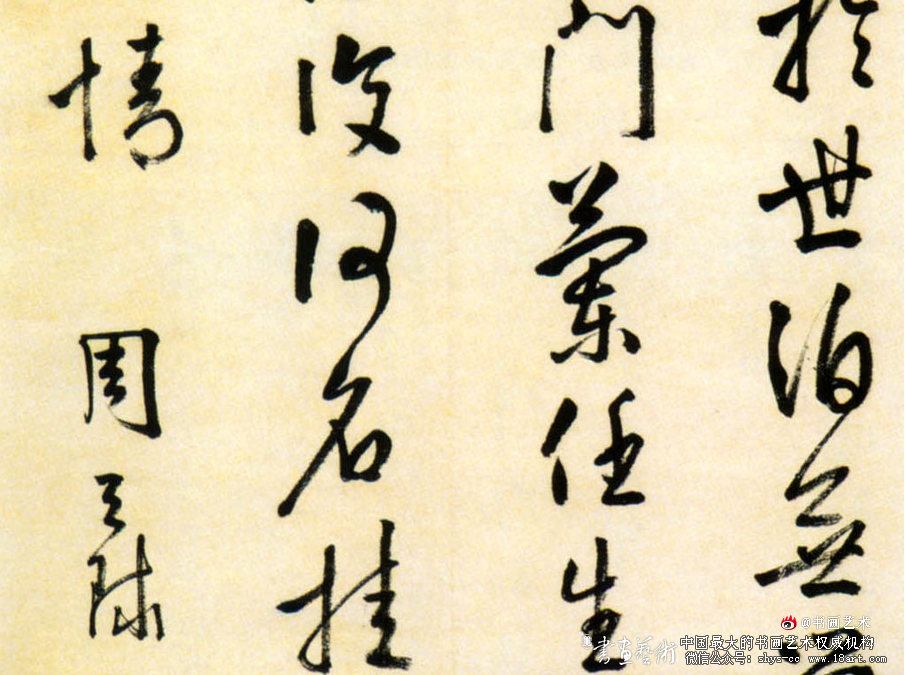 於世泊無
門蘭任生
没何名挂
情
周天球
@书画艺术
書畫藝術
中国最大的书画艺术权威机构
微信公众号: shys-cc www.18art.com